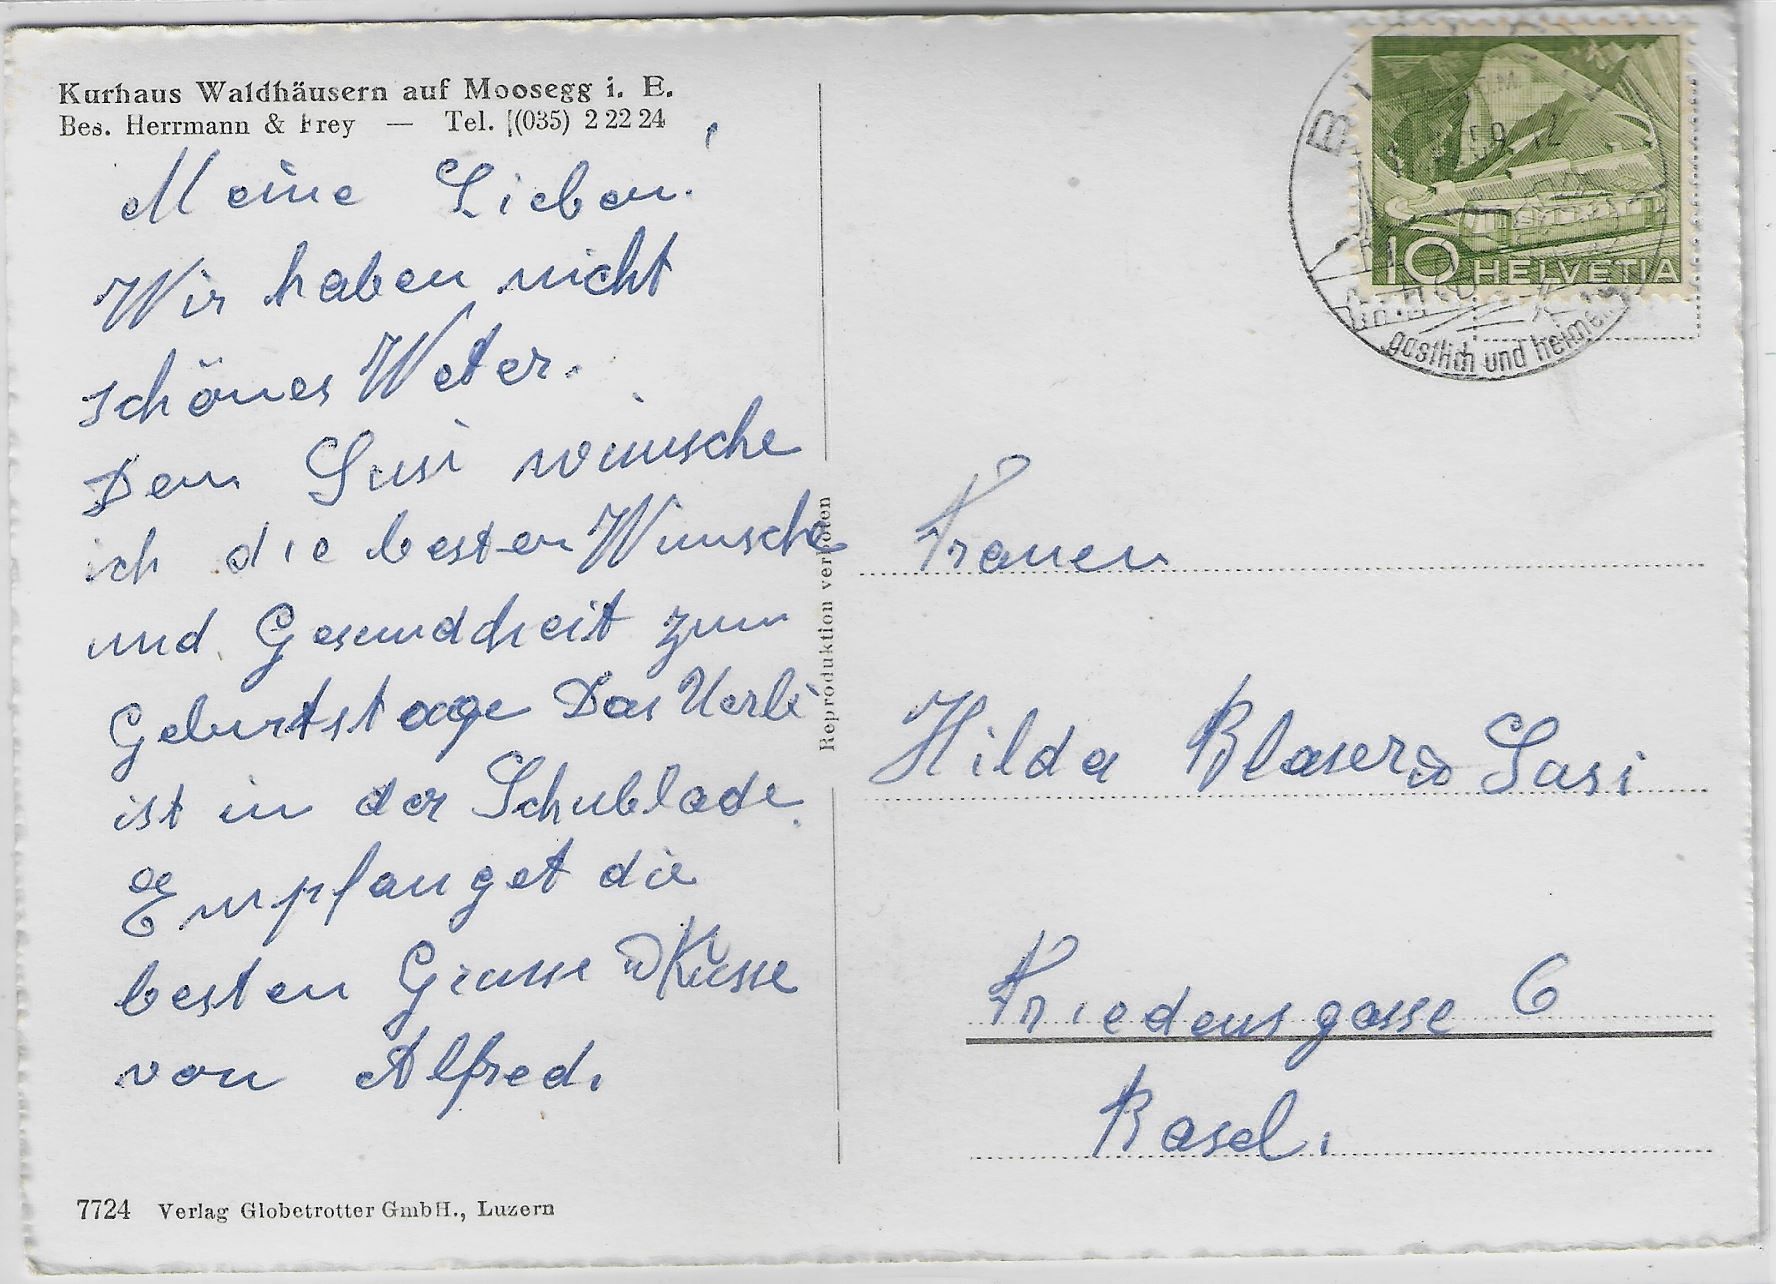 Kurhaus Waldhäusern auf Moosegg i. E.
Bes. Herrmann & Frey — Tel. (035) 2 22 24
Meine Lieben!
Wir haben nicht
schönes Weter.
Dem Susi wünsche
ich die besten Wunsche
und Gesundheit zum
Geburtstage Das Uerli
ist in der Schublade.
Empfanget die
besten Grusse u Küsse
von Alfred.
7724 Verlag Globetrotter GmbH., Luzern
Reproduktion verboten
10 HELVETIA
59. 12
gastlich und heime
Frauen
Hilda Blaser u Susi
Friedensgasse 6
Basel.